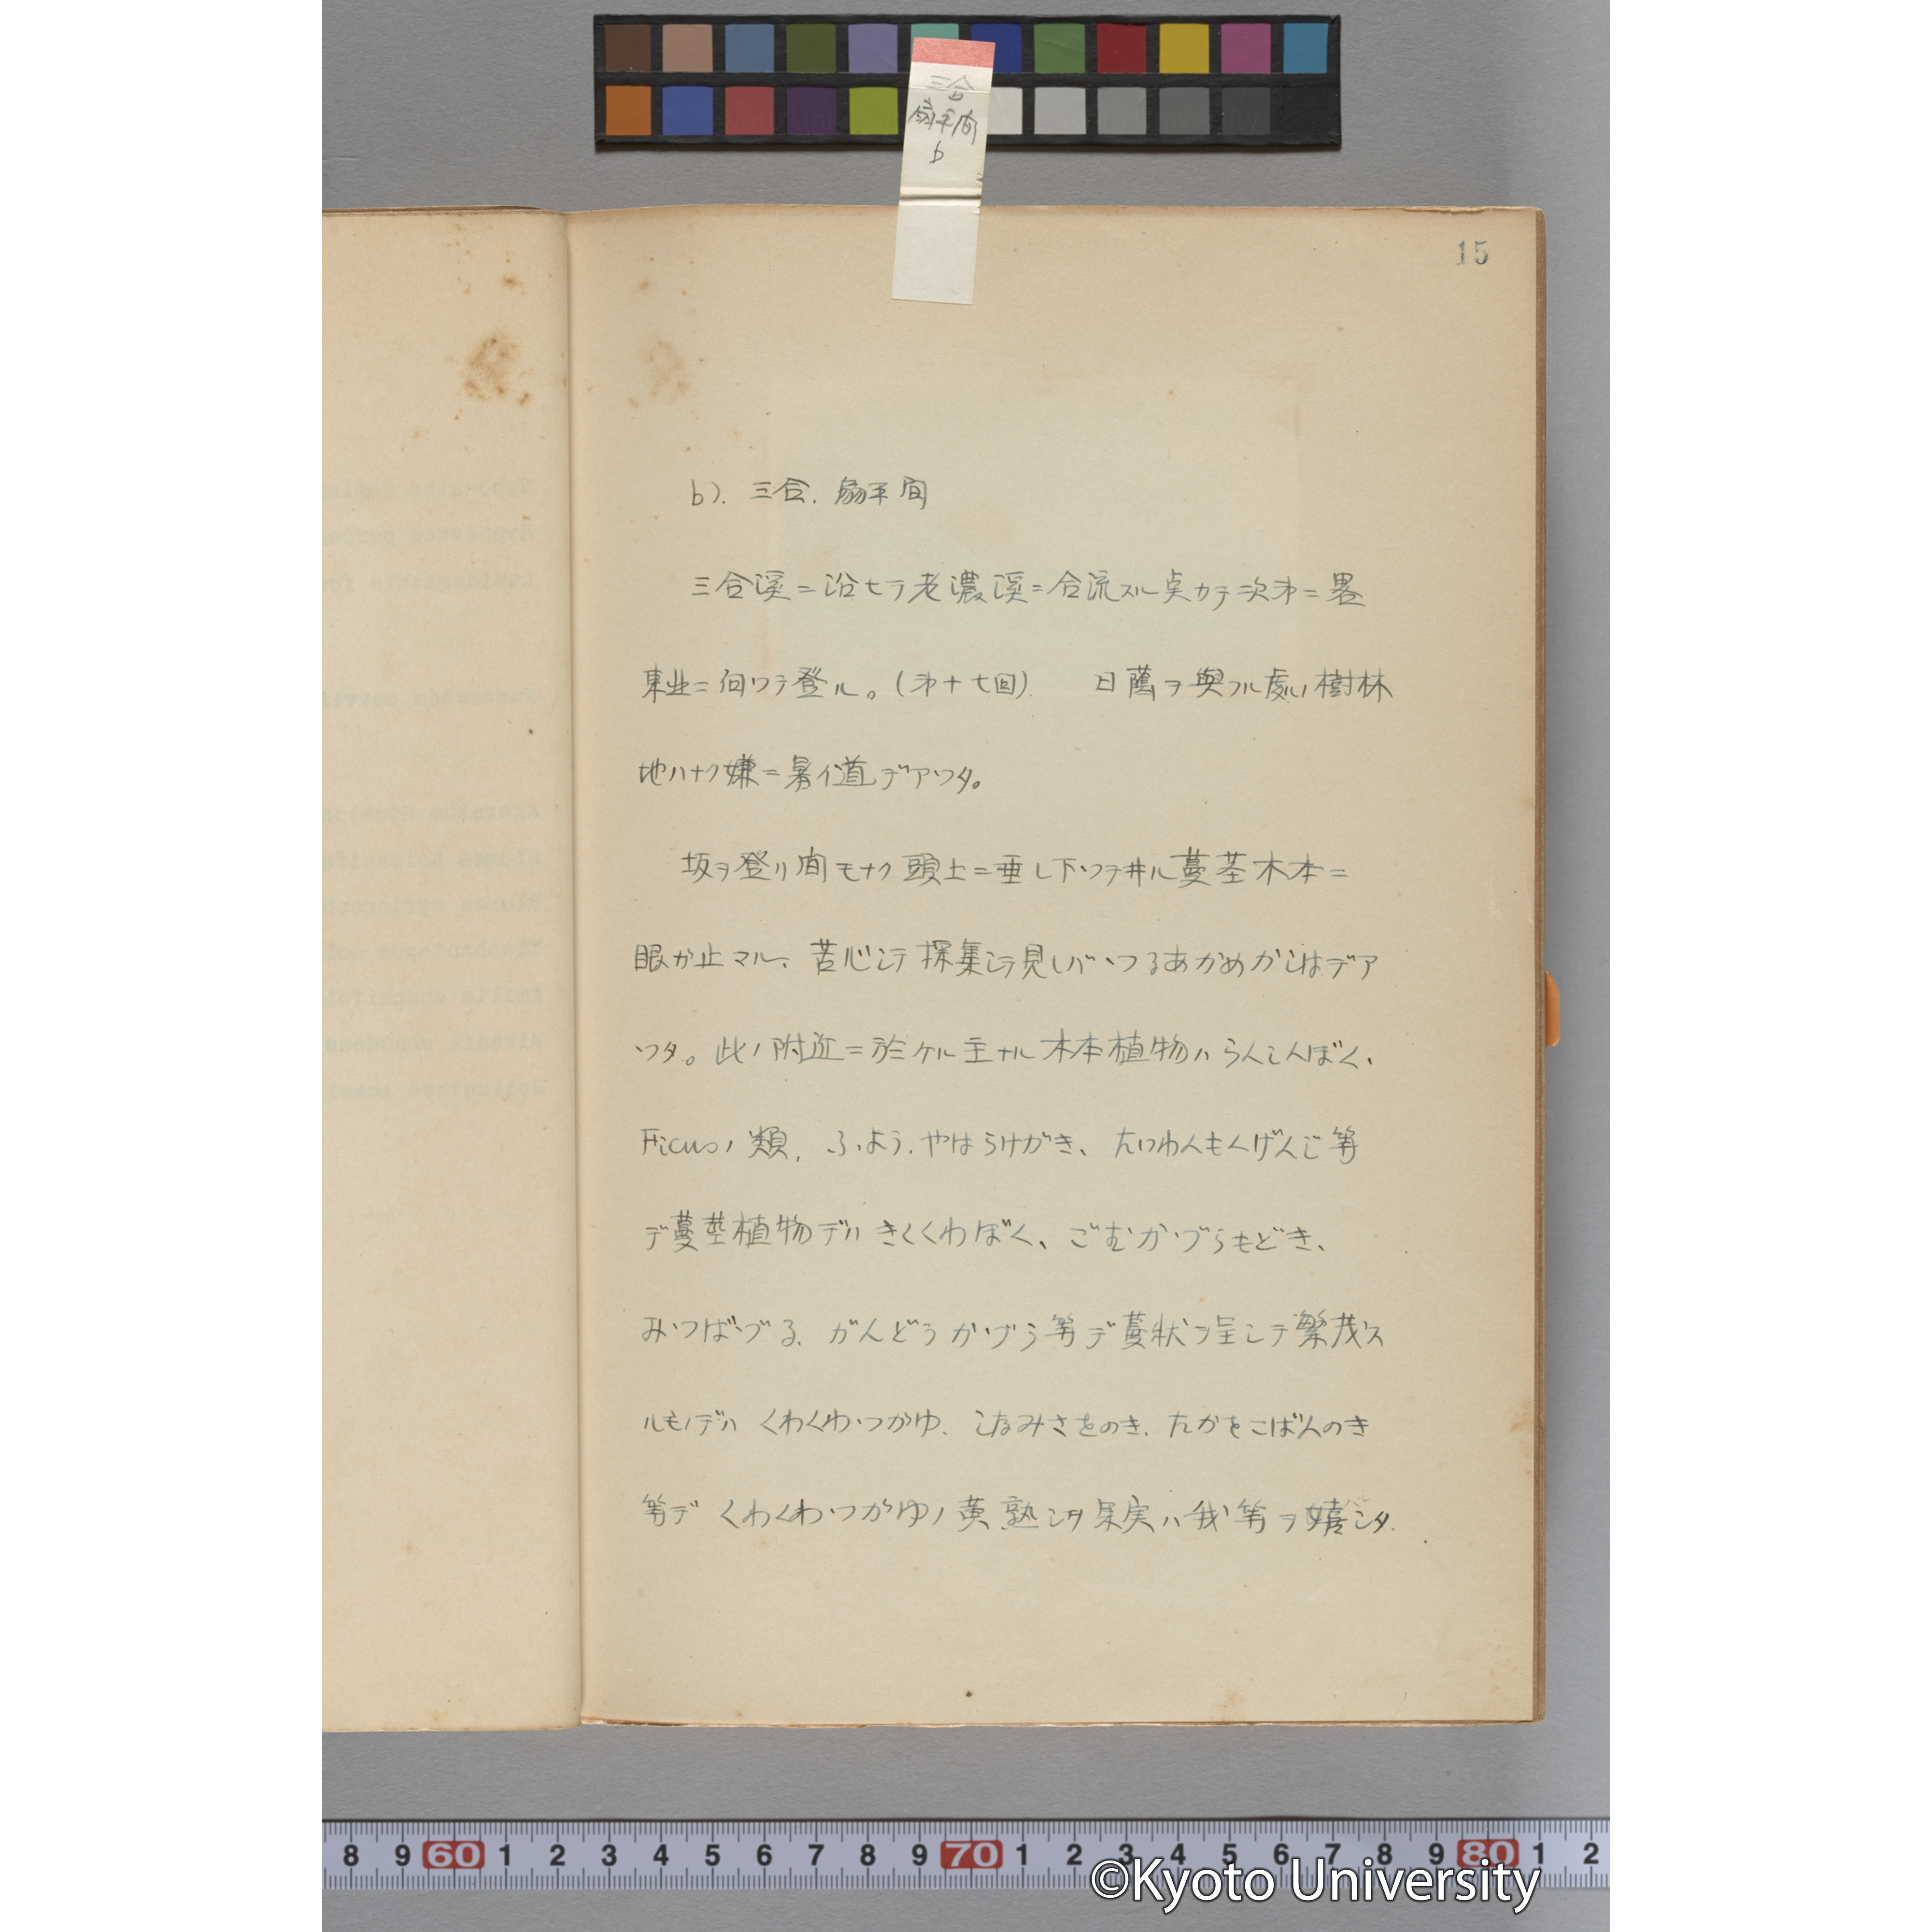 三合
扇平間
b
15
b). 三合. 扇平間
三合溪ニ沿ヒテ老濃溪ニ合流スル点カラ次才ニ畧
東北ニ向ツテ登ル。(才十七回). 日蔭ヲ與フル處ノ樹林
地ハナク嫌ニ暑イ道デアツタ。
坂ヲ登リ間モナク頭上ニ垂レ下ツテ井ル蔓莖木本ニ
眼が止マル、苦心シテ採集シテ見レバつるあかめがしはデア
ツタ。此ノ附近ニ於ケル主ナル木本植物ハらんしんぼく、
Ficusノ類, ふよう. やはらけがき、たいわんもくげんじ等
デ蔓莖植物デハきくくわぼく、ごむかづらもどき、
みつばづる、がんどうかづら等デ蔓狀ヲ呈シテ繁茂ス
ルモノデハ くわくわつがゆ、こなみさをのき、たかをこばんのき
等デ くわくわつがゆノ黄熟シタ果実ハ我等ヲ嬉シタ.
8 9 60 1 2 3 4 5 6 7 8 9 70 1 2 3 4 5 6 7 8 9 80 1 2
©Kyoto University